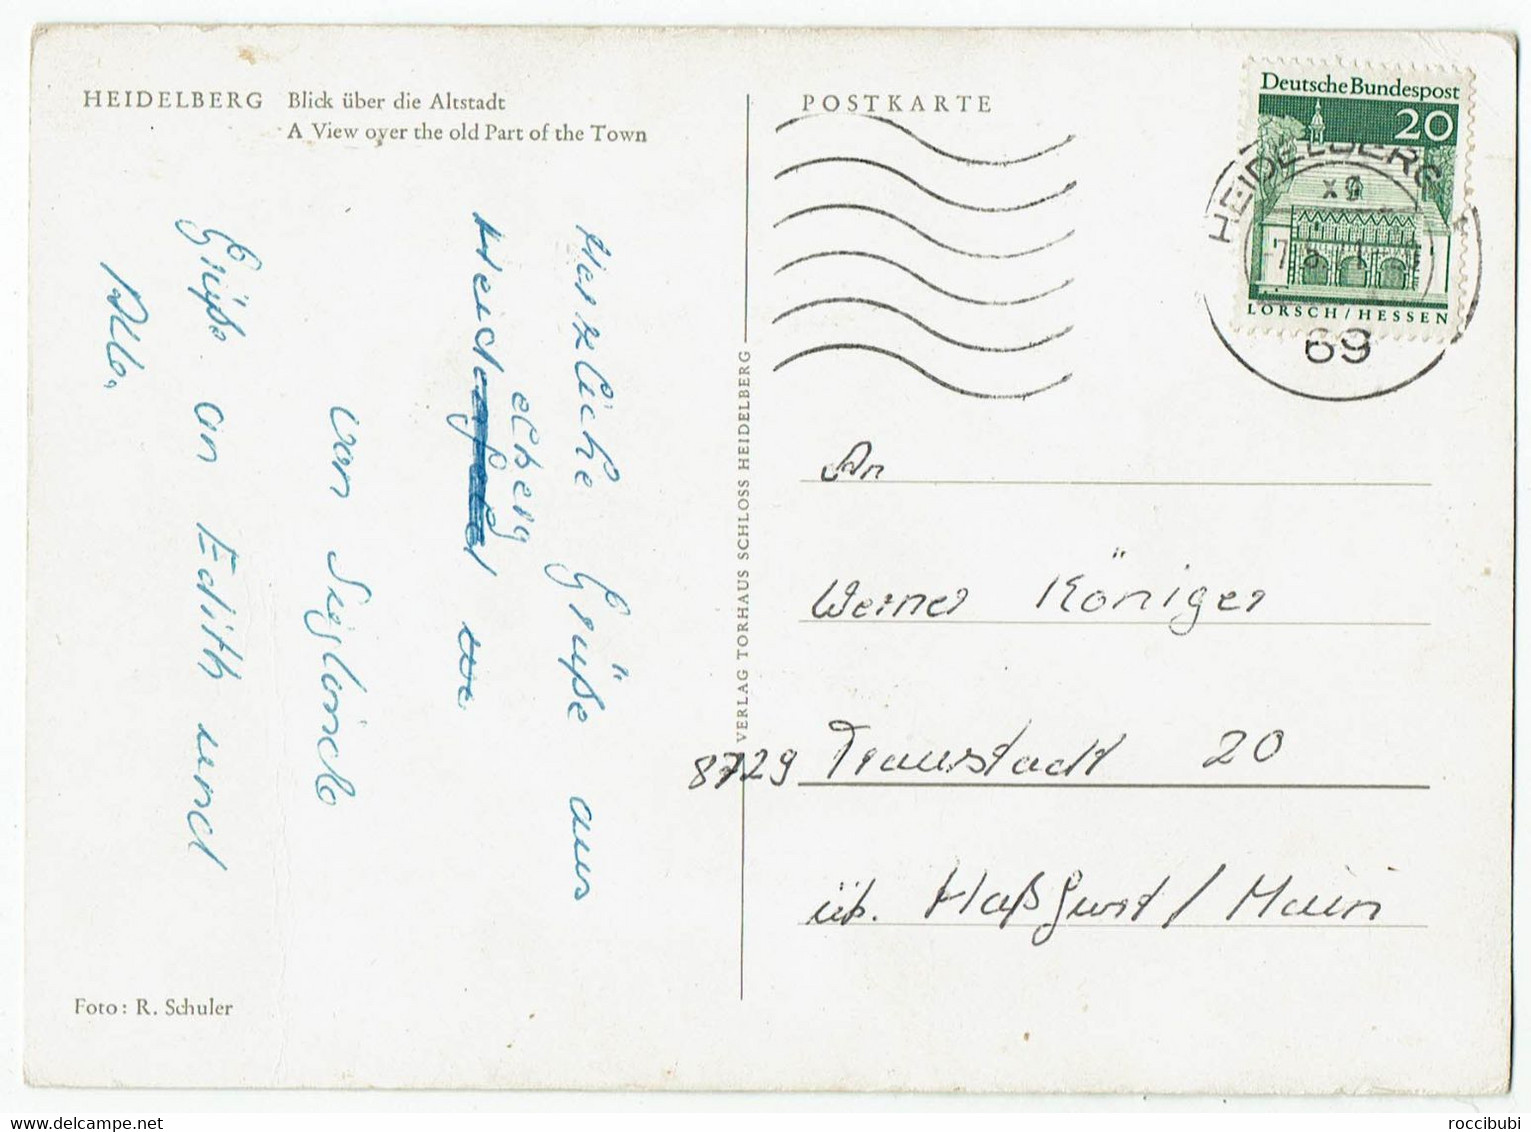 HEIDELBERG Blick über die Altstadt
A View over the old Part of the Town
Herzliche Grüße aus
elberg
Heidefeld
von Sieglinde
Grüße an Edith und
Alb.
Foto: R. Schuler
VERLAG TORHAUS SCHLOSS HEIDELBERG
POSTKARTE
Deutsche Bundespost
20
LORSCH/HESSEN
HEIDELBERG
xg
69
An
Werner Königer
8729 Traustadt 20
üb. Haßfurt/Main
www.delcampe.net
roccibubi